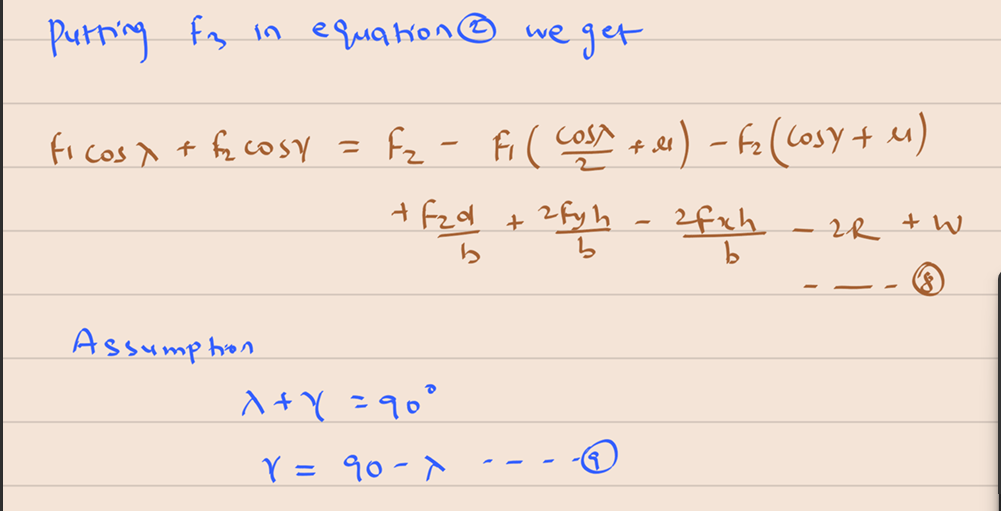 Putting F3 in equation ② we get
F1 cos λ + F2 cos γ = Fz - F1 ( cosλ/2 + μ ) - F2 ( cosγ + μ )
+ Fzd/b + 2Fyh/b - 2Fxh/b - 2R + W
- — - ⑧
Assumption
λ + γ = 90°
γ = 90 - λ - - - - ⑨